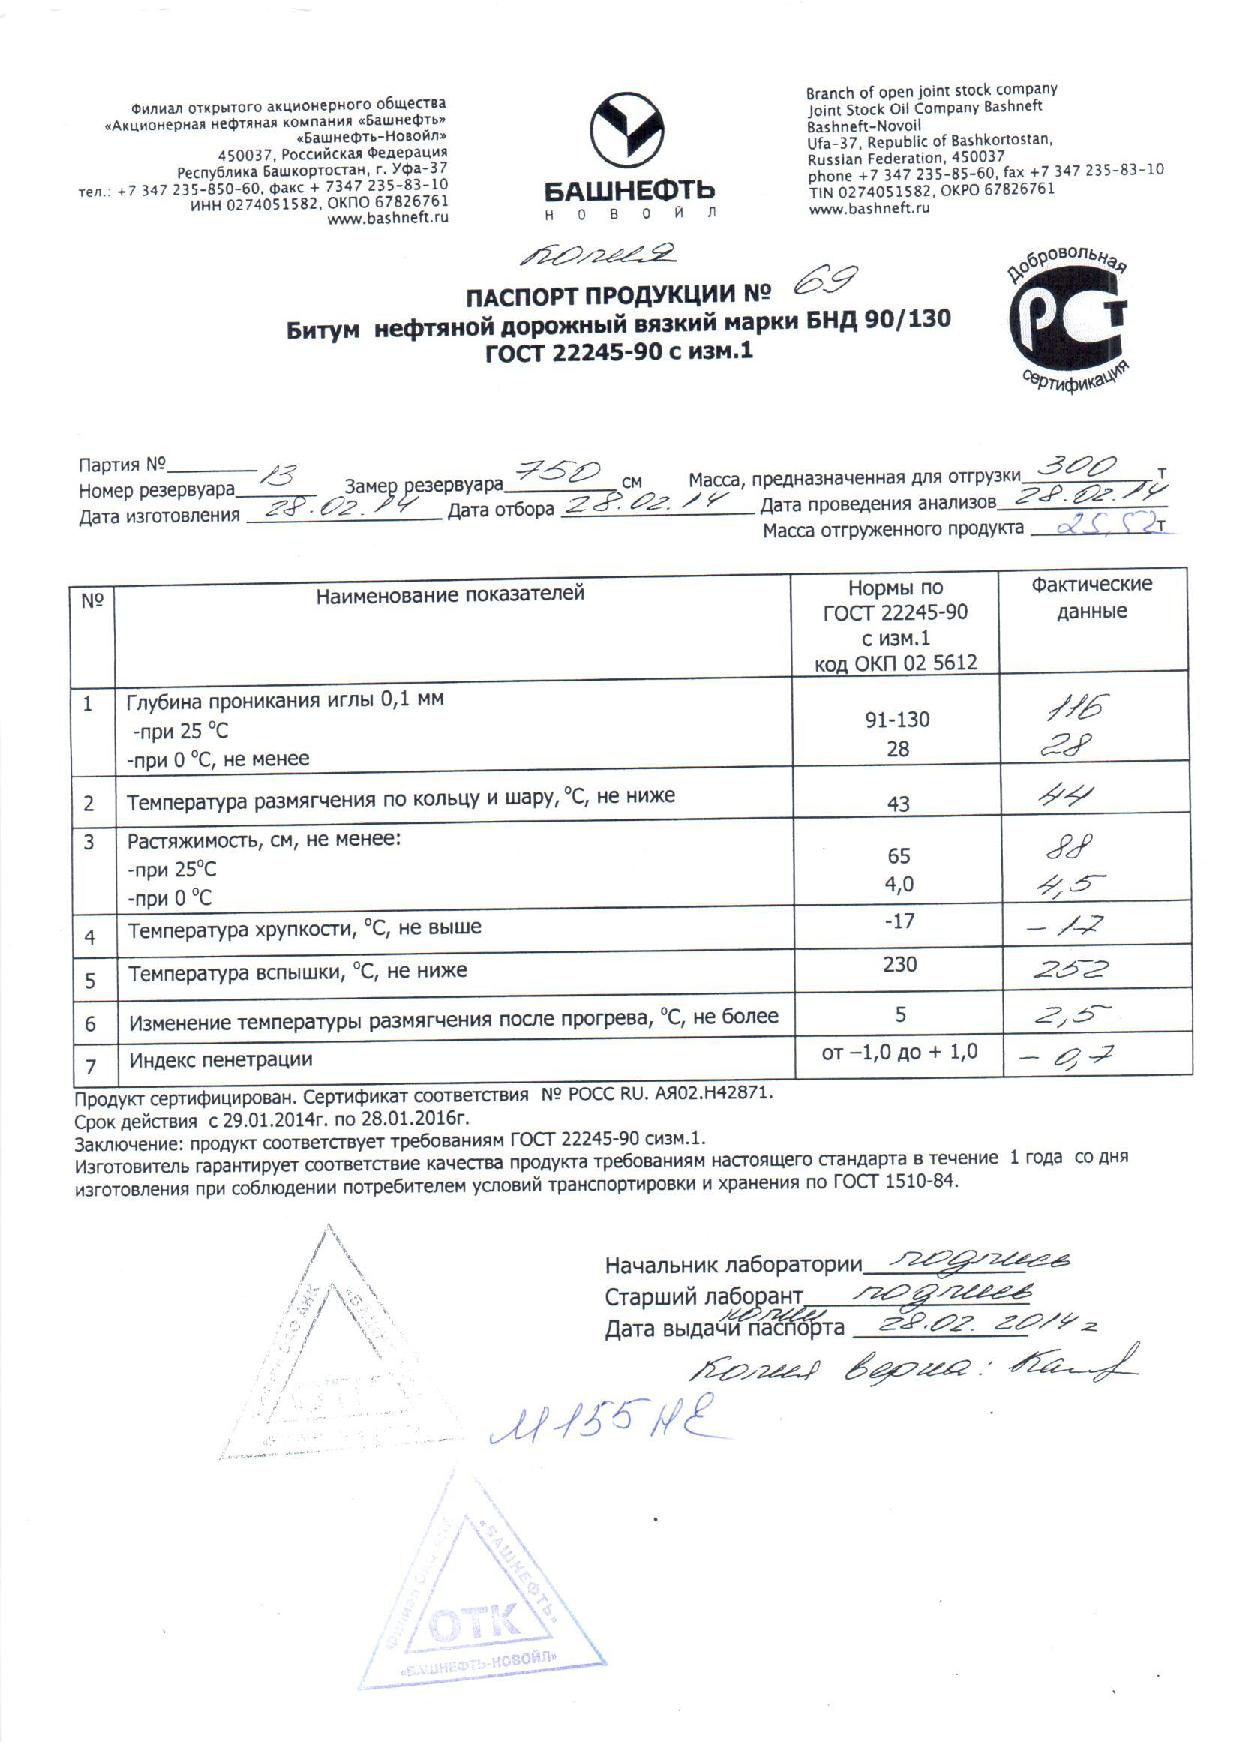 Филиал открытого акционерного общества
«Акционерная нефтяная компания «Башнефть»
«Башнефть-Новойл»
450037, Российская Федерация
Республика Башкортостан, г. Уфа-37
тел.: +7 347 235-850-60, факс + 7347 235-83-10
ИНН 0274051582, ОКПО 67826761
www.bashneft.ru
БАШНЕФТЬ
НОВОЙЛ
Branch of open joint stock company
Joint Stock Oil Company Bashneft
Bashneft-Novoil
Ufa-37, Republic of Bashkortostan,
Russian Federation, 450037
phone +7 347 235-85-60, fax +7 347 235-83-10
TIN 0274051582, OKPO 67826761
www.bashneft.ru
копия
ПАСПОРТ ПРОДУКЦИИ № 69
Битум нефтяной дорожный вязкий марки БНД 90/130
ГОСТ 22245-90 с изм.1
Добровольная
РСТ
сертификация
Партия №
Номер резервуара 13 Замер резервуара 750 см Масса, предназначенная для отгрузки 300 т
Дата изготовления 28.02.14 Дата отбора 28.02.14 Дата проведения анализов 28.02.14
Масса отгруженного продукта 25,52 т
№ Наименование показателей Нормы по ГОСТ 22245-90 с изм.1 код ОКП 02 5612 Фактические данные
1 Глубина проникания иглы 0,1 мм
-при 25 °С 91-130 116
-при 0 °С, не менее 28 28
2 Температура размягчения по кольцу и шару, °С, не ниже 43 44
3 Растяжимость, см, не менее:
-при 25°С 65 88
-при 0 °С 4,0 4,5
4 Температура хрупкости, °С, не выше -17 -17
5 Температура вспышки, °С, не ниже 230 252
6 Изменение температуры размягчения после прогрева, °С, не более 5 2,5
7 Индекс пенетрации от –1,0 до + 1,0 – 0,7
Продукт сертифицирован. Сертификат соответствия № РОСС RU. АЯ02.Н42871.
Срок действия с 29.01.2014г. по 28.01.2016г.
Заключение: продукт соответствует требованиям ГОСТ 22245-90 сизм.1.
Изготовитель гарантирует соответствие качества продукта требованиям настоящего стандарта в течение 1 года со дня
изготовления при соблюдении потребителем условий транспортировки и хранения по ГОСТ 1510-84.
Начальник лаборатории подпись
Старший лаборант подпись
копии
Дата выдачи паспорта 28.02. 2014 г
Копия верна:
М155НЕ
Филиал ОАО АНК
«БАШНЕФТЬ»
ОТК
«БАШНЕФТЬ-НОВОЙЛ»